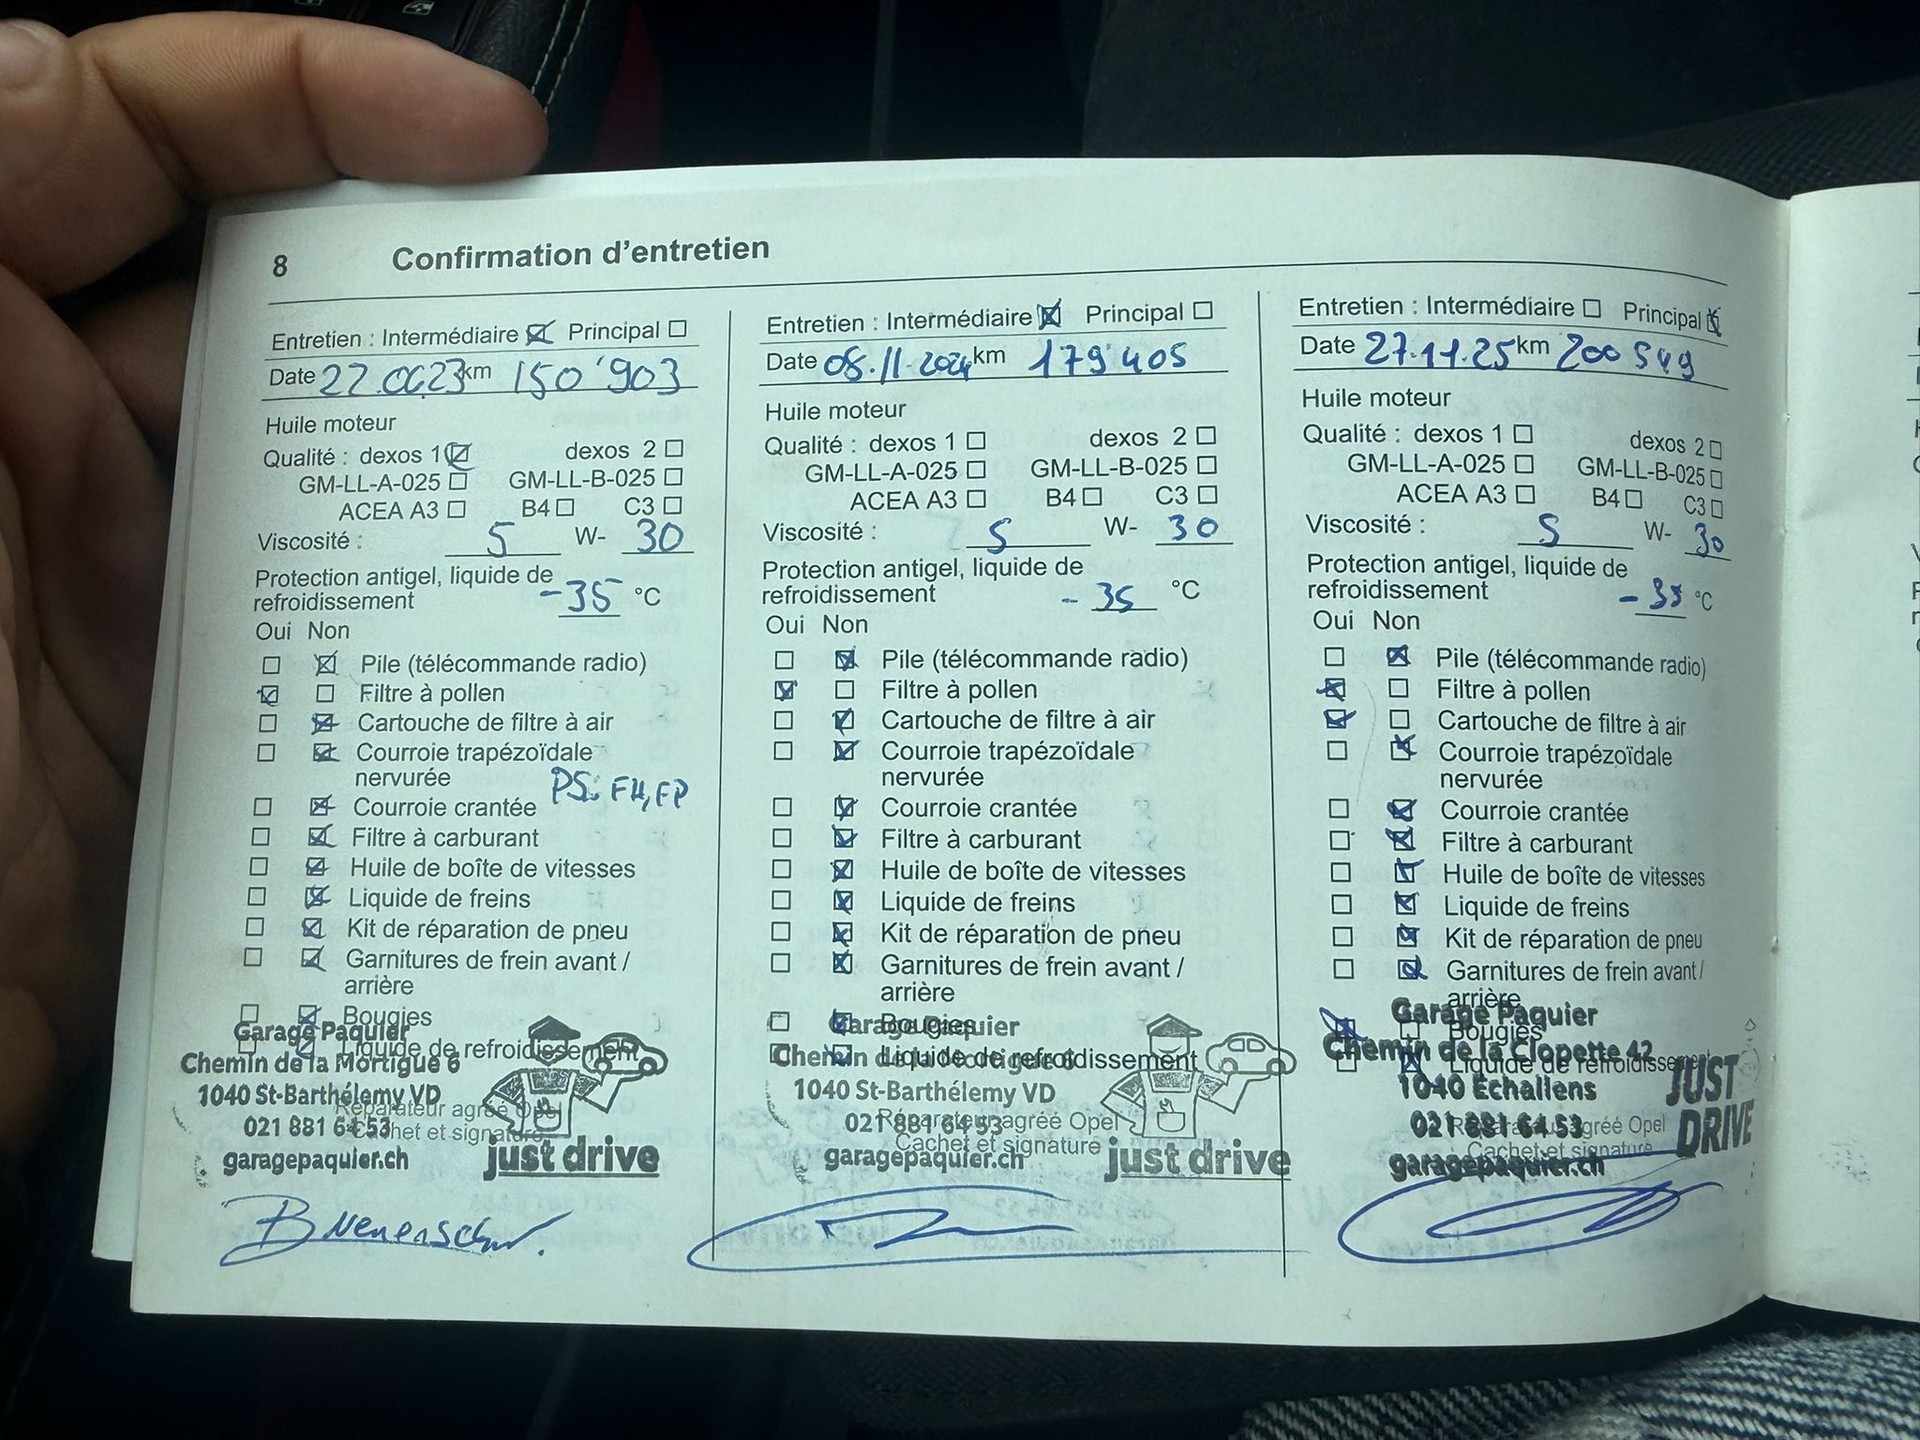 8 Confirmation d'entretien
Entretien : Intermédiaire Principal
Date 22.0623 km 150'903
Huile moteur
Qualité : dexos 1 dexos 2
GM-LL-A-025 GM-LL-B-025
ACEA A3 B4 C3
Viscosité : 5 W- 30
Protection antigel, liquide de
refroidissement -35 °C
Oui Non
Pile (télécommande radio)
Filtre à pollen
Cartouche de filtre à air
Courroie trapézoïdale
nervurée
PS: FH, FP
Courroie crantée
Filtre à carburant
Huile de boîte de vitesses
Liquide de freins
Kit de réparation de pneu
Garnitures de frein avant /
arrière
Bougies
Liquide de refroidissement
Réparateur agréé Opel
Cachet et signature
Garage Paquier
Chemin de la Mortigue 6
1040 St-Barthélemy VD
021 881 64 53
garagepaquier.ch
just drive
Entretien : Intermédiaire Principal
Date 08.11.2024 km 179'405
Huile moteur
Qualité : dexos 1 dexos 2
GM-LL-A-025 GM-LL-B-025
ACEA A3 B4 C3
Viscosité : 5 W- 30
Protection antigel, liquide de
refroidissement - 35 °C
Oui Non
Pile (télécommande radio)
Filtre à pollen
Cartouche de filtre à air
Courroie trapézoïdale
nervurée
Courroie crantée
Filtre à carburant
Huile de boîte de vitesses
Liquide de freins
Kit de réparation de pneu
Garnitures de frein avant /
arrière
Bougies
Liquide de refroidissement
Réparateur agréé Opel
Cachet et signature
Garage Paquier
Chemin de la Mortigue 6
1040 St-Barthélemy VD
021 881 64 53
garagepaquier.ch
just drive
Entretien : Intermédiaire Principal
Date 27.11.25 km 200 549
Huile moteur
Qualité : dexos 1 dexos 2
GM-LL-A-025 GM-LL-B-025
ACEA A3 B4 C3
Viscosité : 5 W- 30
Protection antigel, liquide de
refroidissement - 35 °C
Oui Non
Pile (télécommande radio)
Filtre à pollen
Cartouche de filtre à air
Courroie trapézoïdale
nervurée
Courroie crantée
Filtre à carburant
Huile de boîte de vitesses
Liquide de freins
Kit de réparation de pneu
Garnitures de frein avant /
arrière
Bougies
Liquide de refroidissement
Réparateur agréé Opel
Cachet et signature
Garage Paquier
Chemin de la Clopette 42
1040 Echallens
021 881 64 53
garagepaquier.ch
JUST
DRIVE